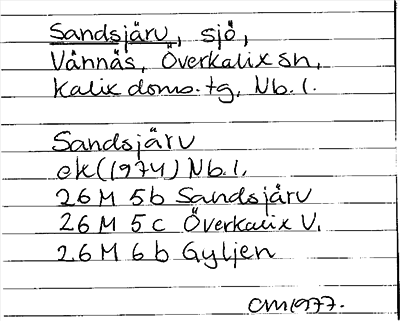 Sandsjärv, sjö,
Vännäs, Överkalix sn,
Kalix doms. tg, Nb. l.
Sandsjärv
ek (1974) Nb. l.
26 M 5b Sandsjärv
26 M 5 c Överkalix V.
26 M 6 b Gyljen
CM1977.